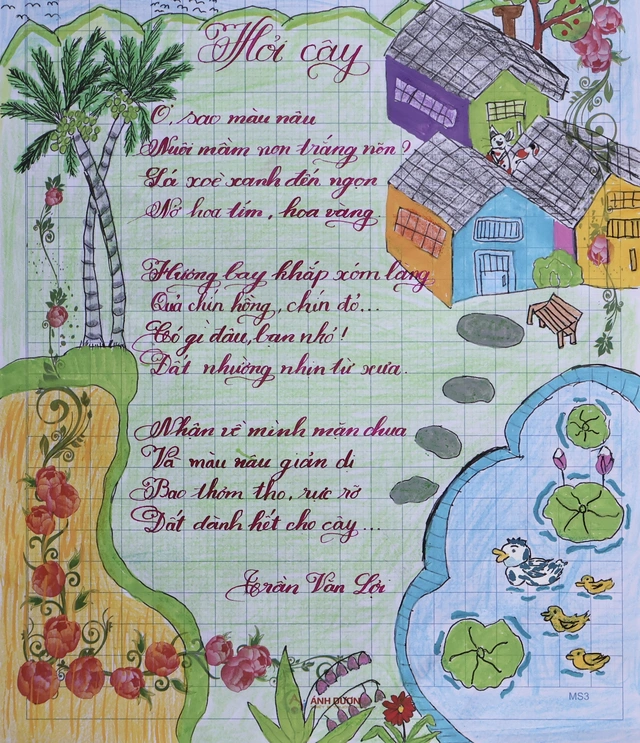 Hỏi cây
Ơ, sao màu nâu
Nuôi mầm non trắng nõn?
Lá xoè xanh đến ngọn
Nở hoa tím, hoa vàng.
Hương bay khắp xóm làng
Quả chín hồng, chín đỏ...
Có gì đâu, bạn nhỏ!
Đất nhường nhịn từ xưa.
Nhận về mình mặn chua
Và màu nâu giản dị
Bao thơm tho, rực rỡ
Đất dành hết cho cây...
Trần Văn Lợi
ÁNH DƯƠNG
MS3